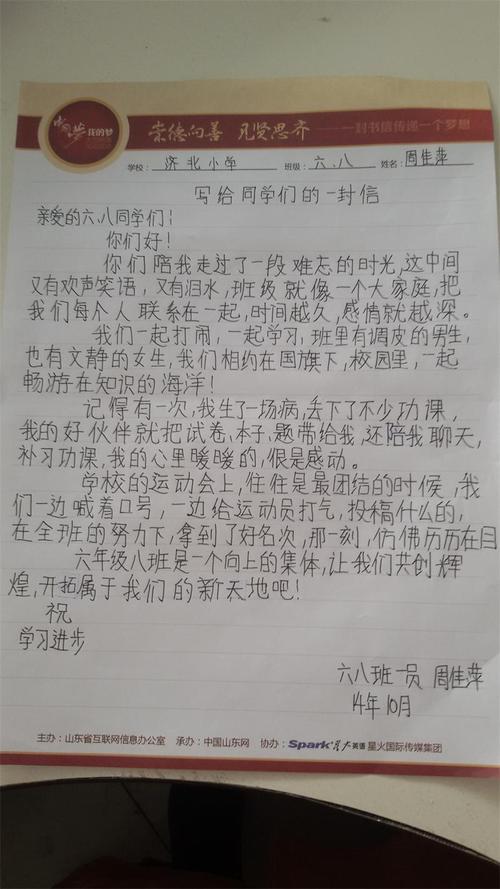 中国梦 我的梦
崇德向善 见贤思齐 ——一封书信传递一个梦想
学校：济北小学 班级：六、八 姓名：周佳萍
写给同学们的一封信
亲爱的六、八同学们：
你们好！
你们陪我走过了一段难忘的时光，这中间
又有欢声笑语，又有泪水，班级就像一个大家庭，把
我们每个人联系在一起，时间越久，感情就越深。
我们一起打闹，一起学习，班里有调皮的男生，
也有文静的女生，我们相约在国旗下，校园里，一起
畅游在知识的海洋！
记得有一次，我生了一场病，丢下了不少功课，
我的好伙伴就把试卷、本子、题带给我，还陪我聊天，
补习功课，我的心里暖暖的，很是感动。
学校的运动会上，往往是最团结的时候，我
们一边喊着口号，一边给运动员打气，投稿什么的，
在全班的努力下，拿到了好名次，那一刻，仿佛历历在目
六年级八班是一个向上的集体，让我们共创辉
煌，开拓属于我们的新天地吧！
祝
学习进步
六八班一员 周佳萍
14年10月
主办：山东省互联网信息办公室 承办：中国山东网 协办：Spark星火英语 星火国际传媒集团